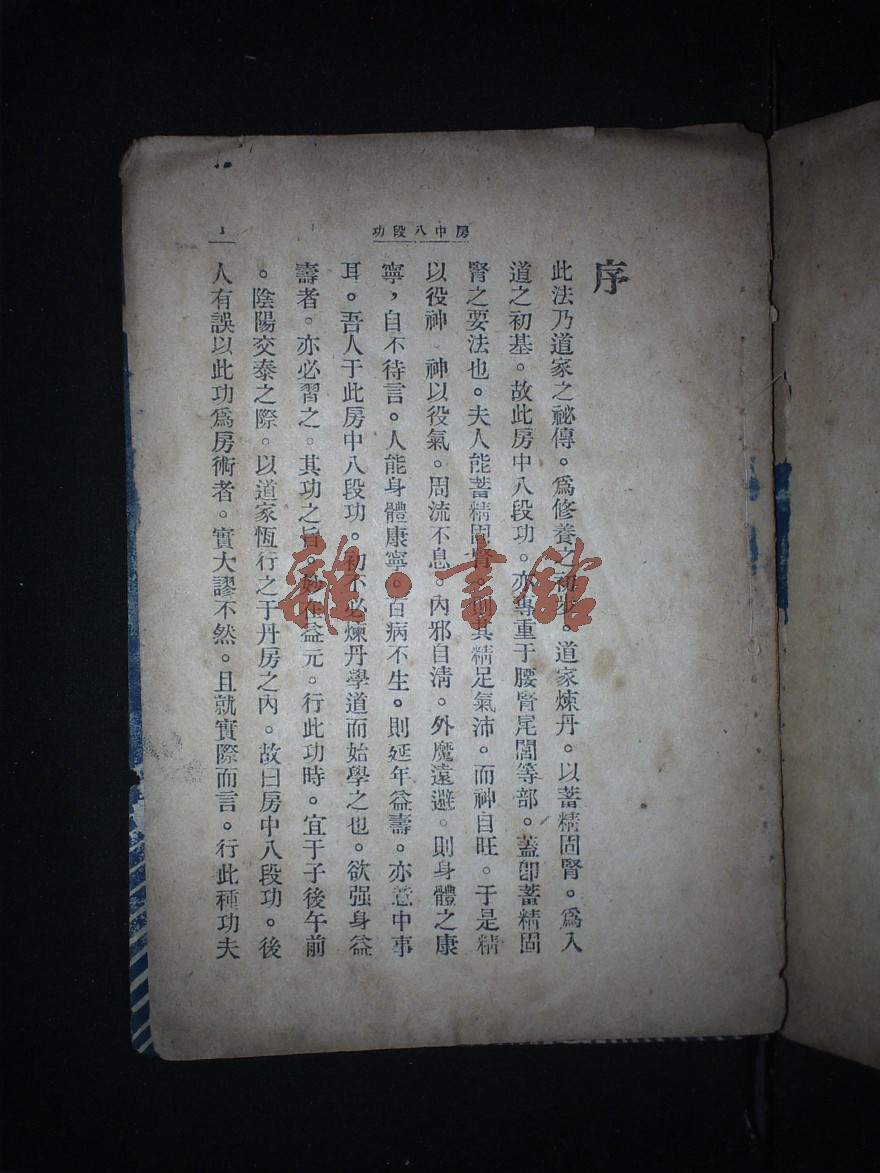 房中八段功
序
此法乃道家之祕傳。爲修養之初步。道家煉丹。以蓄精固腎。爲入
道之初基。故此房中八段功。亦專重于腰腎尾閭等部。蓋卽蓄精固
腎之要法也。夫人能蓄精固腎。則其精足氣沛。而神自旺。于是精
以役神 神以役氣。周流不息。內邪自清。外魔遠避。則身體之康
寧，自不待言。人能身體康寧。百病不生。則延年益壽。亦意中事
耳。吾人于此房中八段功。初不必煉丹學道而始學之也。欲强身益
壽者。亦必習之。其功之旨。妙在益元。行此功時。宜于子後午前
。陰陽交泰之際。以道家恆行之于丹房之內。故曰房中八段功。後
人有誤以此功爲房術者。實大謬不然。且就實際而言。行此種功夫
1
雜·書館